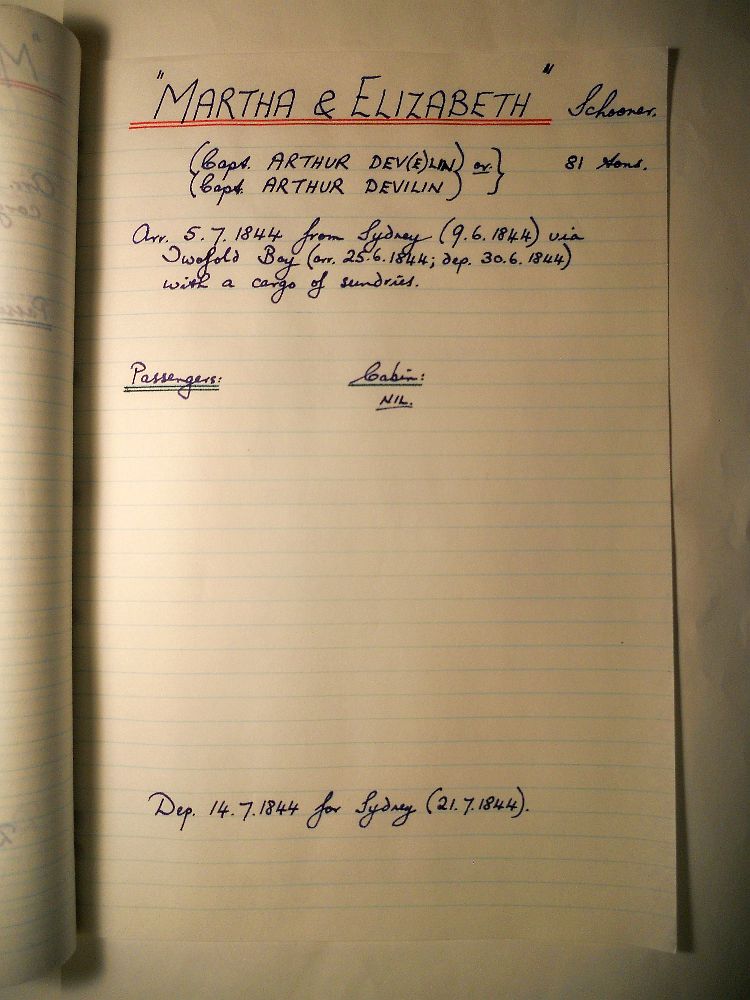 "MARTHA & ELIZABETH" Schooner.
(Capt. ARTHUR DEV(E)LIN) or } 81 tons.
(Capt. ARTHUR DEVILIN) }
Arr. 5.7.1844 from Sydney (9.6.1844) via
Twofold Bay (arr. 25.6.1844; dep. 30.6.1844)
with a cargo of sundries.
Passengers: Cabin:
NIL.
Dep. 14.7.1844 for Sydney (21.7.1844).